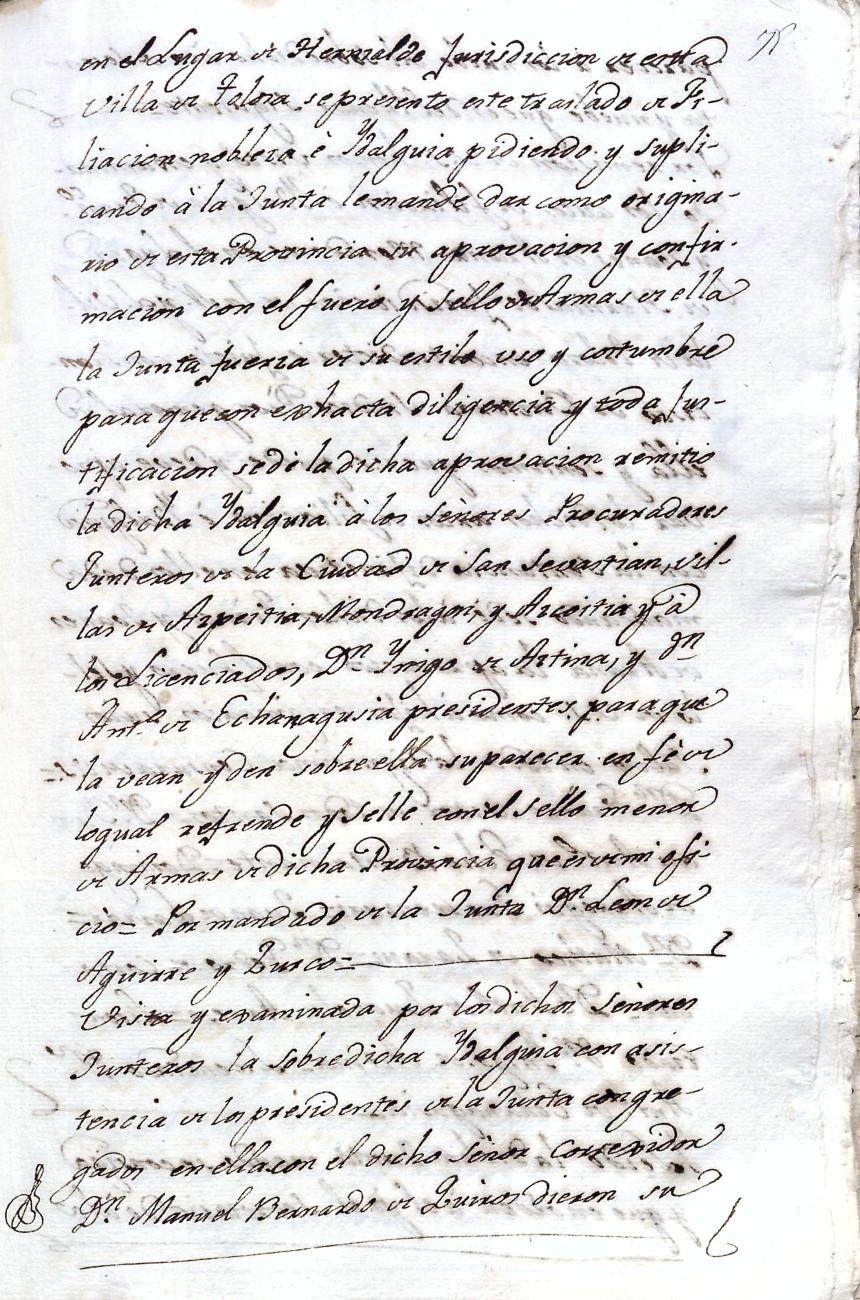 en el Lugar de Hernialde Jurisdiccion de esta
Villa de Tolosa se presento este traslado de Fi-
liacion nobleza è Ydalguia pidiendo y supli-
cando à la Junta le mande dar como origina-
rio de esta Provincia su aprovacion y confir-
macion con el fuero y sello de Armas de ella
la Junta fueria de su estilo uso y costumbre
para que con exhacta diligencia y toda Jus-
tificacion se dè la dicha aprovacion remitio
la dicha Ydalguia à los Señores Procuradores
Junteros de la Ciudad de San Sevastian, vil-
las de Azpeitia, Mondragon, y Azcoitia y à
los Licenciados, Dn. Ynigo de Artina, y Dn
Antº de Echanagusia presidentes para que
la vean y den sobre ella su parecer en fè de
lo qual refrende y selle con el sello menor
de Armas de dicha Provincia que es de mi ofi-
cio= Por mandado de la Junta Dn. Leon de
Aguirre y Zurco=
Vista y examinada por los dichos Señores
Junteros la sobredicha Ydalguia con asis-
tencia de los presidentes de la Junta congre-
gados en ella con el dicho Señor Corregidor
Dn. Manuel Bernardo de Quiros dieron su